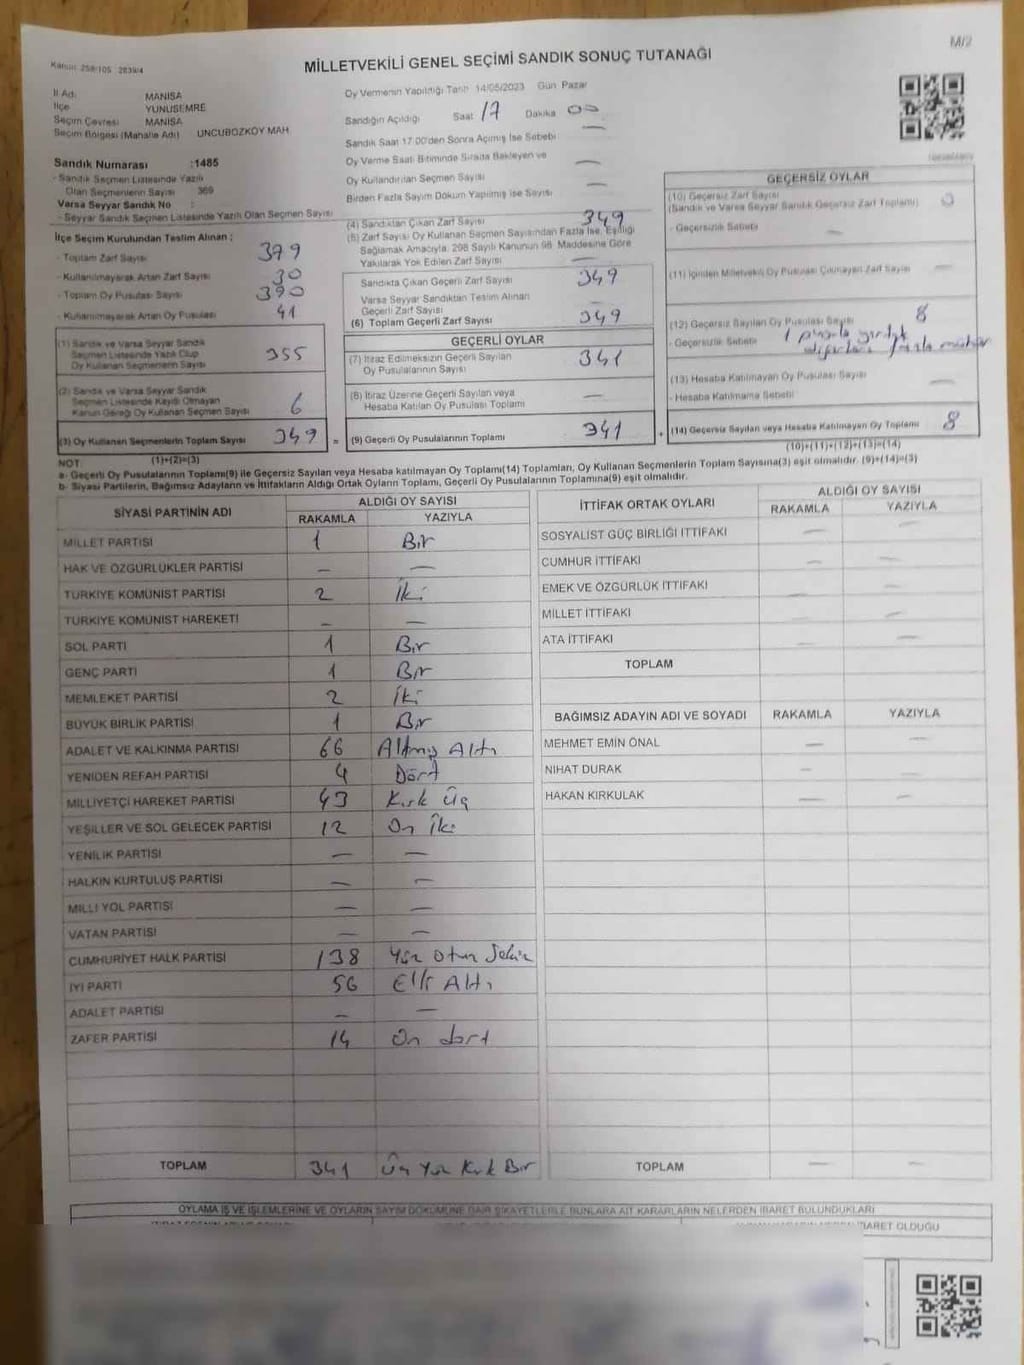 M/2
Kanun: 298/105 : 2839/4
MİLLETVEKİLİ GENEL SEÇİMİ SANDIK SONUÇ TUTANAĞI
İl Adı MANİSA
İlçe YUNUSEMRE
Seçim Çevresi MANİSA
Seçim Bölgesi (Mahalle Adı) UNCUBOZKÖY MAH.
Oy Vermenin Yapıldığı Tarih 14/05/2023 Gün Pazar
Sandığın Açıldığı Saat 17 Dakika 00
Sandık Saat 17:00'den Sonra Açımış İse Sebebi —
Oy Verme Saati Bitiminde Sırada Bekleyen ve
Oy Kullandırılan Seçmen Sayısı —
Birden Fazla Sayım Döküm Yapılmış İse Sayısı —
Sandık Numarası :1485
- Sandık Seçmen Listesinde Yazılı
Olan Seçmenlerin Sayısı 369
Varsa Seyyar Sandık No :
- Seyyar Sandık Seçmen Listesinde Yazılı Olan Seçmen Sayısı
İlçe Seçim Kurulundan Teslim Alınan ;
- Toplam Zarf Sayısı 379
- Kullanılmayarak Artan Zarf Sayısı 30
- Toplam Oy Pusulası Sayısı 390
- Kullanılmayarak Artan Oy Pusulası 41
(1) Sandık ve Varsa Seyyar Sandık
Seçmen Listesinde Yazılı Olup
Oy Kullanan Seçmenlerin Sayısı 355
(2) Sandık ve Varsa Seyyar Sandık
Seçmen Listesinde Kaydı Olmayan
Kanun Gereği Oy Kullanan Seçmen Sayısı 6
(3) Oy Kullanan Seçmenlerin Toplam Sayısı 349 =
(1)+(2)=(3)
(4) Sandıktan Çıkan Zarf Sayısı 349
(5) Zarf Sayısı Oy Kullanan Seçmen Sayısından Fazla İse, Eşitliği
Sağlamak Amacıyla, 298 Sayılı Kanunun 98. Maddesine Göre
Yakılarak Yok Edilen Zarf Sayısı —
Sandıkta Çıkan Geçerli Zarf Sayısı 349
Varsa Seyyar Sandıktan Teslim Alınan
Geçerli Zarf Sayısı
(6) Toplam Geçerli Zarf Sayısı 349
GEÇERLİ OYLAR
(7) İtiraz Edilmeksizin Geçerli Sayılan
Oy Pusulalarının Sayısı 341
(8) İtiraz Üzerine Geçerli Sayılan veya
Hesaba Katılan Oy Pusulası Toplamı —
(9) Geçerli Oy Pusulalarının Toplamı 341 +
GEÇERSİZ OYLAR
(10) Geçersiz Zarf Sayısı
(Sandık ve Varsa Seyyar Sandık Geçersiz Zarf Toplamı)
- Geçersizlik Sebebi —
(11) İçinden Milletvekili Oy Pusulası Çıkmayan Zarf Sayısı —
(12) Geçersiz Sayılan Oy Pusulası Sayısı 8
- Geçersizlik Sebebi 1 pusula yırtık
diğerleri fazla mühür
(13) Hesaba Katılmayan Oy Pusulası Sayısı —
- Hesaba Katılmama Sebebi
(14) Geçersiz Sayılan veya Hesaba Katılmayan Oy Toplamı 8
(10)+(11)+(12)+(13)=(14)
NOT:
a- Geçerli Oy Pusulalarının Toplamı(9) ile Geçersiz Sayılan veya Hesaba katılmayan Oy Toplamı(14) Toplamları, Oy Kullanan Seçmenlerin Toplam Sayısına(3) eşit olmalıdır. (9)+(14)=(3)
b- Siyasi Partilerin, Bağımsız Adayların ve İttifakların Aldığı Ortak Oyların Toplamı, Geçerli Oy Pusulalarının Toplamına(9) eşit olmalıdır.
SİYASİ PARTİNİN ADI ALDIĞI OY SAYISI
RAKAMLA YAZIYLA
MİLLET PARTİSİ 1 Bir
HAK VE ÖZGÜRLÜKLER PARTİSİ — —
TÜRKİYE KOMÜNİST PARTİSİ 2 İki
TÜRKİYE KOMÜNİST HAREKETİ — —
SOL PARTİ 1 Bir
GENÇ PARTİ 1 Bir
MEMLEKET PARTİSİ 2 İki
BÜYÜK BİRLİK PARTİSİ 1 Bir
ADALET VE KALKINMA PARTİSİ 66 Altmış Altı
YENİDEN REFAH PARTİSİ 4 Dört
MİLLİYETÇİ HAREKET PARTİSİ 43 Kırk Üç
YEŞİLLER VE SOL GELECEK PARTİSİ 12 On İki
YENİLİK PARTİSİ — —
HALKIN KURTULUŞ PARTİSİ — —
MİLLİ YOL PARTİSİ — —
VATAN PARTİSİ — —
CUMHURİYET HALK PARTİSİ 138 Yüz Otuz Sekiz
İYİ PARTİ 56 Elli Altı
ADALET PARTİSİ — —
ZAFER PARTİSİ 14 On dört
TOPLAM 341 Üç Yüz Kırk Bir
İTTİFAK ORTAK OYLARI ALDIĞI OY SAYISI
RAKAMLA YAZIYLA
SOSYALİST GÜÇ BİRLİĞİ İTTİFAKI — —
CUMHUR İTTİFAKI — —
EMEK VE ÖZGÜRLÜK İTTİFAKI — —
MİLLET İTTİFAKI — —
ATA İTTİFAKI — —
TOPLAM
BAĞIMSIZ ADAYIN ADI VE SOYADI RAKAMLA YAZIYLA
MEHMET EMİN ÖNAL — —
NİHAT DURAK — —
HAKAN KIRKULAK — —
TOPLAM — —
OYLAMA İŞ VE İŞLEMLERİNE VE OYLARIN SAYIM DÖKÜMÜNE DAİR ŞİKAYETLERLE BUNLARA AİT KARARLARIN NELERDEN İBARET BULUNDUKLARI
İBARET OLDUĞU